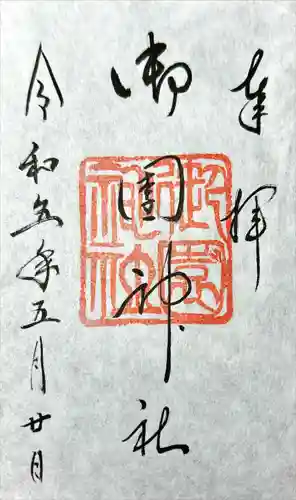 奉拝
御園神社
令和五年五月廿日
御園神社